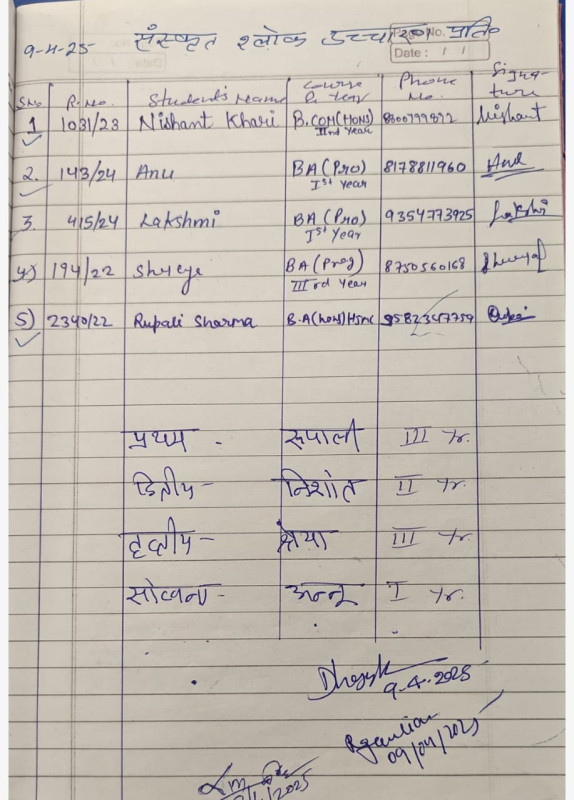 9-4-25- संस्कृत श्लोक उच्चारण प्रति०
No.
Date : / /
S.No R.No. Student's Name Course & Year Phone No. Signa-ture
1 1031/23 Nishant Khari B.COM(HONS) IInd Year 8800799892 Nishant
2. 143/24 Anu BA (Pro) Ist Year 8178811960 Anu
3. 415/24 Lakshmi BA (Pro) Ist Year 9354773925 Lakshi
4) 194/22 Shreya BA (Prog) IIIrd Year 8750560168
5) 2340/22 Rupali Sharma B.A(hons) 9582347759
प्रथम - रूपाली III Yr.
द्वितीय - निशांत II Yr.
तृतीय - श्रेया III Yr.
सांत्वना - अन्नू I Yr.
9-4-2025
09/04/2025